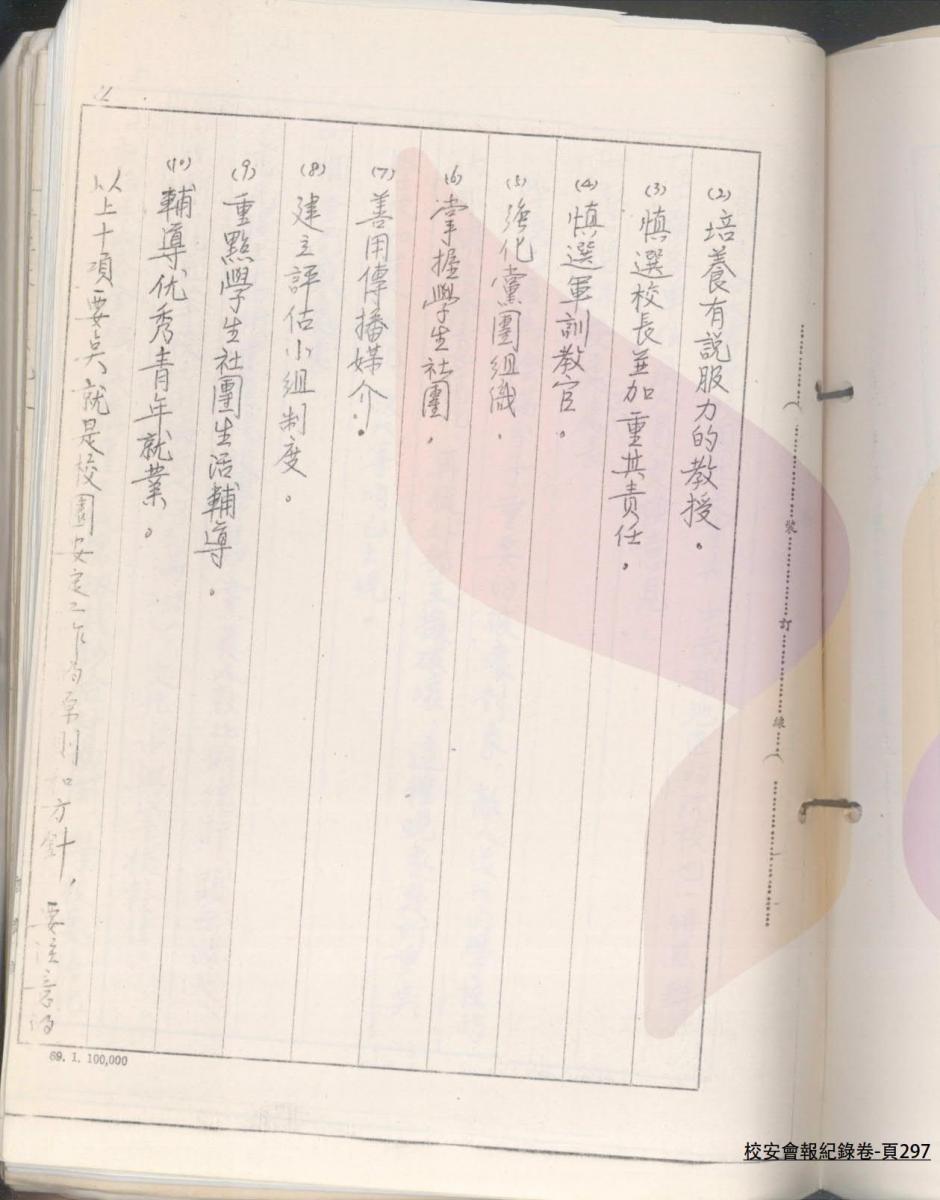 (2)培養有説服力的教授。
(3)慎選校長並加重其責任。
(4)慎選軍訓教官。
(5)強化黨團組織。
(6)掌握學生社團。
(7)善用傳播媒介。
(8)建立評估小組制度。
(9)重點學生社團生活輔導。
(10)輔導优秀青年就業。
以上十項要点就是校園安定工作的原則和方針，要注意的
裝
訂
線
69. 1. 100,000
校安會報紀錄卷-頁297